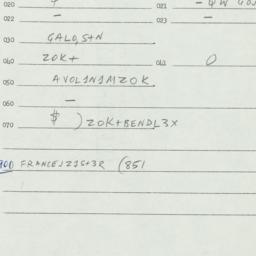 020
021
022 – 023 –
030 GALO,S+N
040 ZOK+ 041 0
050 AVOL1N1MZOK
060 –
070 $ )ZOK+BEND,L3X
900 FRANCEJZ1S+3R (851